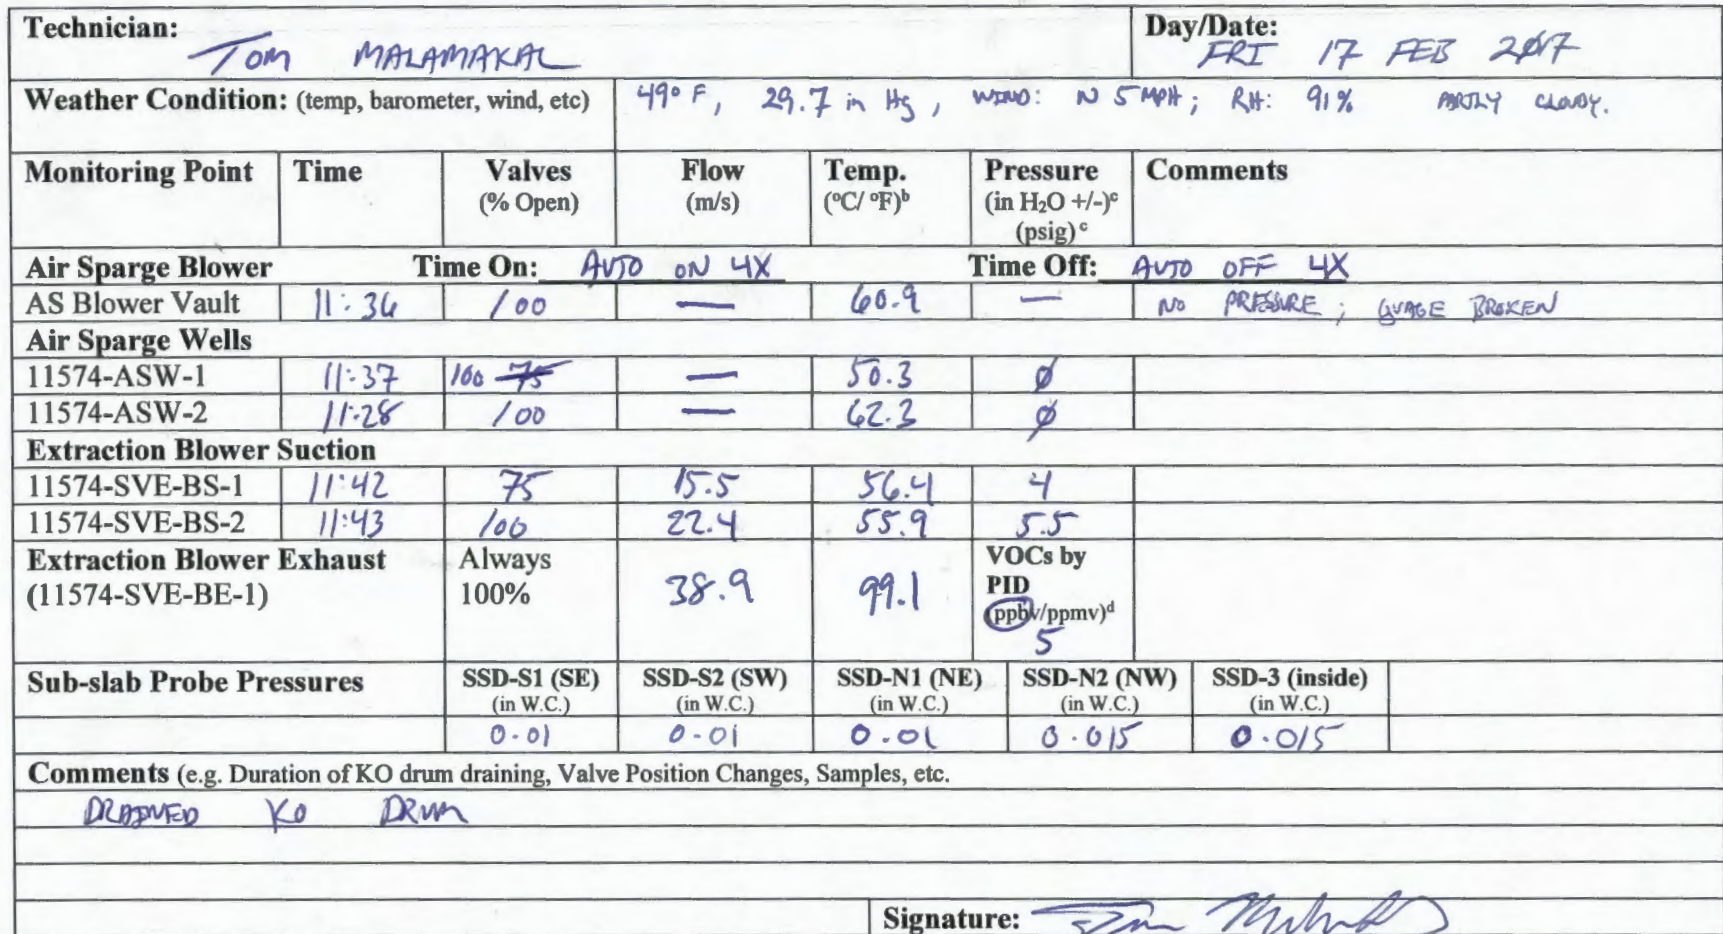 Technician: Day/Date:
TOM MALAMAKAL FRI 17 FEB 2017
Weather Condition: (temp, barometer, wind, etc) 49° F, 29.7 in Hg, WIND: N 5 MPH; RH: 91% PARTLY CLOUDY.
Monitoring Point Time Valves Flow Temp. Pressure Comments
(% Open) (m/s) (°C/ °F)b (in H2O +/-)c
(psig) c
Air Sparge Blower Time On: AUTO ON 4X Time Off: AUTO OFF 4X
AS Blower Vault 11:36 100 — 60.9 — NO PRESSURE; GUAGE BROKEN
Air Sparge Wells
11574-ASW-1 11:37 100 75 — 50.3 Ø
11574-ASW-2 11:28 100 — 62.3 Ø
Extraction Blower Suction
11574-SVE-BS-1 11:42 75 15.5 56.4 4
11574-SVE-BS-2 11:43 100 22.4 55.9 5.5
Extraction Blower Exhaust Always VOCs by
(11574-SVE-BE-1) 100% 38.9 99.1 PID
(ppbv/ppmv)d
5
Sub-slab Probe Pressures SSD-S1 (SE) SSD-S2 (SW) SSD-N1 (NE) SSD-N2 (NW) SSD-3 (inside)
(in W.C.) (in W.C.) (in W.C.) (in W.C.) (in W.C.)
0.01 0.01 0.01 0.015 0.015
Comments (e.g. Duration of KO drum draining, Valve Position Changes, Samples, etc.
DRAINED KO DRUM
Signature: